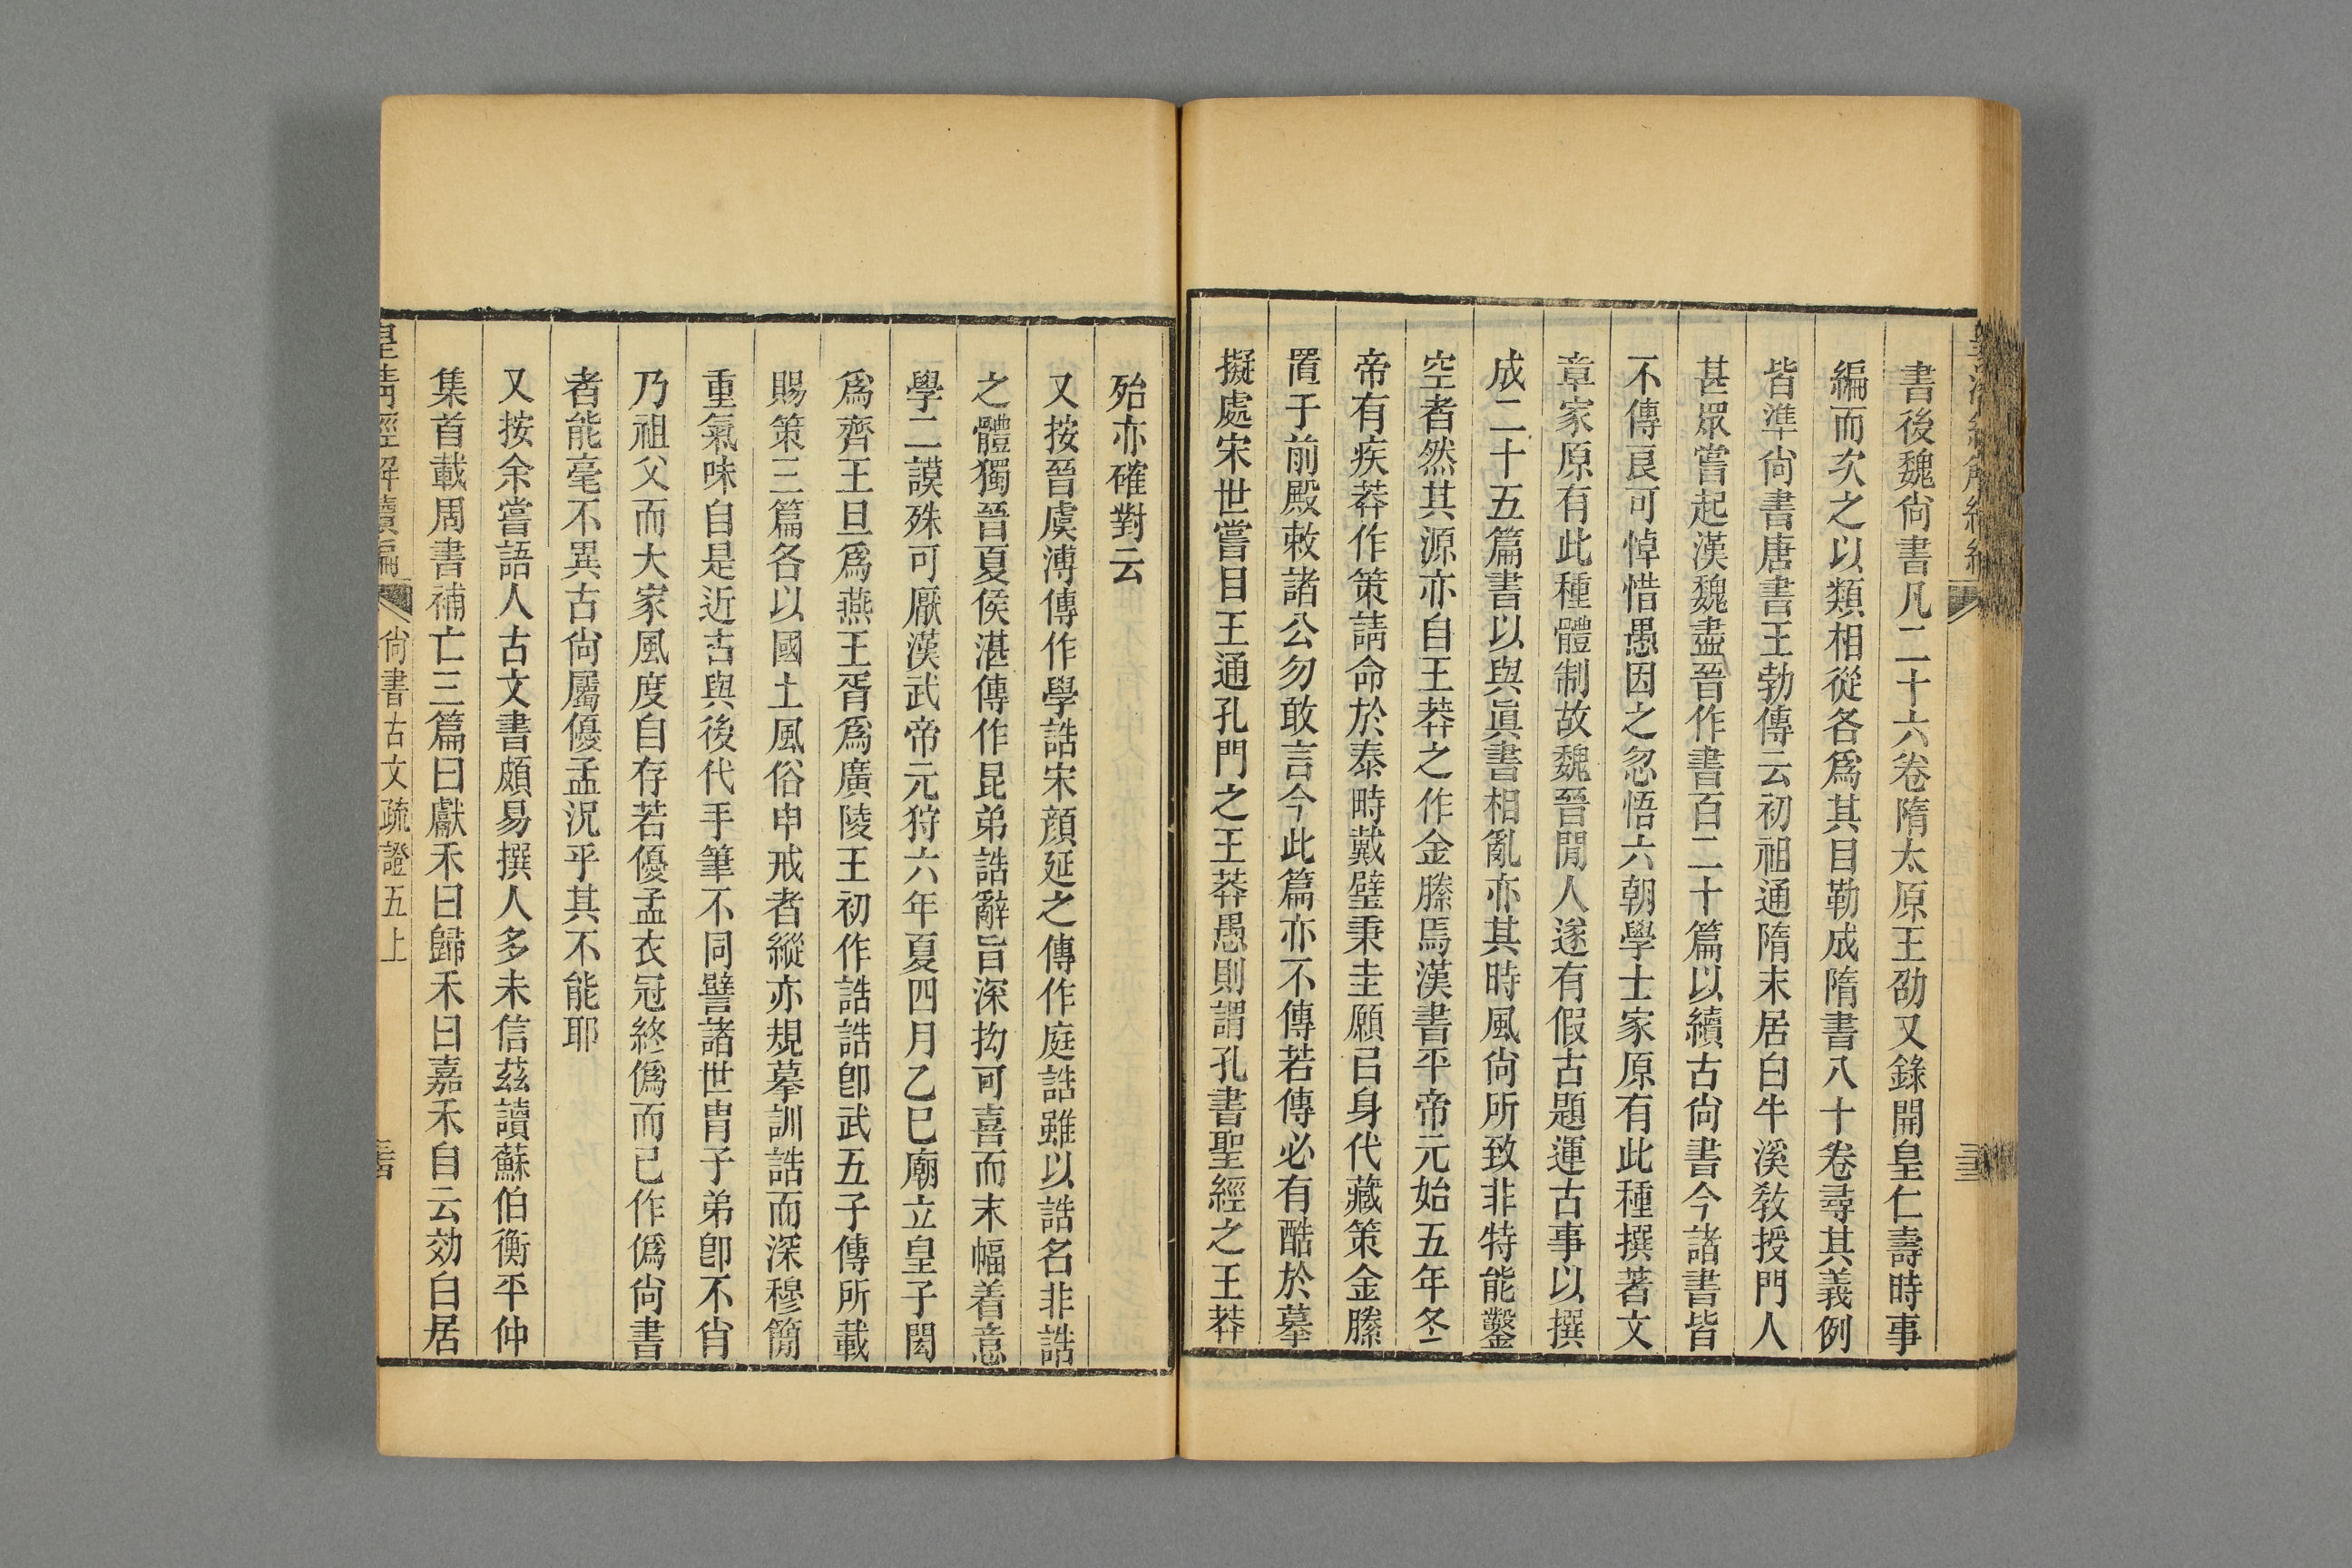 書後魏尙書凡二十六卷隋太原王劭又錄開皇仁壽時事
編而次之以類相從各爲其目勒成隋書八十卷尋其義例
皆準尙書唐書王勃傳云初祖通隋末居白牛溪敎授門人
甚眾嘗起漢魏盡晉作書百二十篇以續古尙書今諸書皆
不傳良可悼惜愚因之忽悟六朝學士家原有此種撰著文
章家原有此種體制故魏晉閒人遂有假古題運古事以撰
成二十五篇書以與眞書相亂亦其時風尙所致非特能鑿
空者然其源亦自王莽之作金縢焉漢書平帝元始五年冬
帝有疾莽作策請命於泰畤戴璧秉圭願已身代藏策金縢
置于前殿敕諸公勿敢言今此篇亦不傳若傳必有酷於摹
擬處宋世嘗目王通孔門之王莽愚則謂孔書聖經之王莽
殆亦確對云
又按晉虞溥傳作學誥宋顏延之傳作庭誥雖以誥名非誥
之體獨晉夏侯湛傳作昆弟誥辭旨深拗可喜而末幅着意
學二謨殊可厭漢武帝元狩六年夏四月乙巳廟立皇子閎
爲齊王旦爲燕王胥爲廣陵王初作誥誥卽武五子傳所載
賜策三篇各以國土風俗申戒者縱亦規摹訓誥而深穆簡
重氣味自是近古與後代手筆不同譬諸世冑子弟卽不肖
乃祖父而大家風度自存若優孟衣冠終僞而已作僞尙書
者能毫不異古尙屬優孟況乎其不能耶
又按余嘗語人古文書頗易撰人多未信茲讀蘇伯衡平仲
集首載周書補亡三篇曰獻禾曰歸禾曰嘉禾自云効白居
皇淸經解續編
尙書古文疏證五上